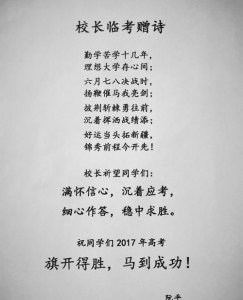 校长临考赠诗
勤学苦学十几年，
理想大学存心间；
六月七八决战时，
扬鞭催马我亮剑；
披荆斩棘勇往前，
沉着挥洒战绩添；
好运当头拓新疆，
锦秀前程今开先！
校长祈望同学们：
满怀信心，沉着应考，
细心作答，稳中求胜。
祝同学们2017年高考
旗开得胜，马到成功！